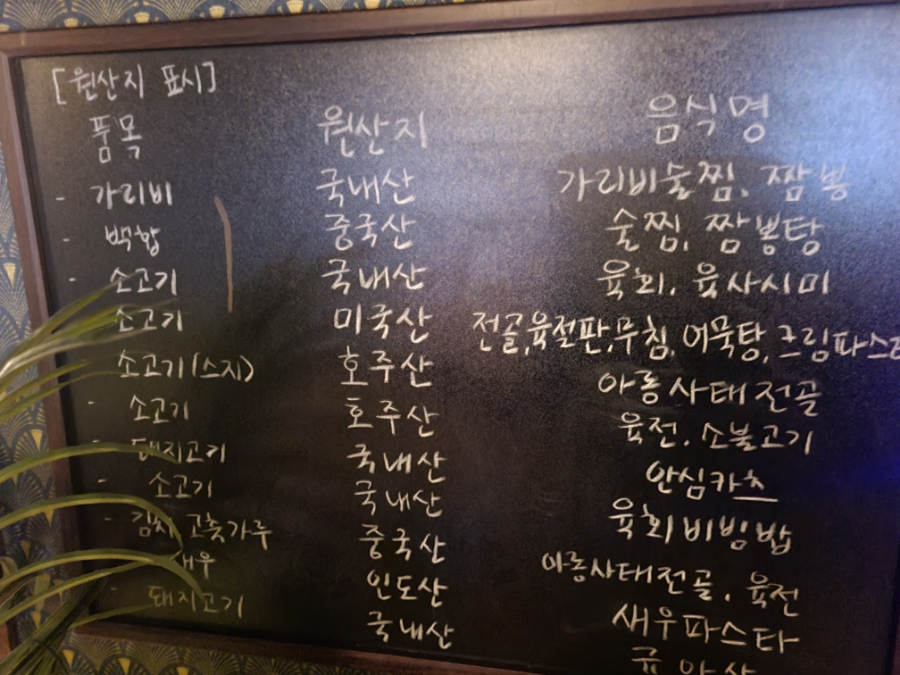 [원산지 표시]
품목 원산지 음식명
- 가리비 국내산 가리비술찜, 짬뽕
- 백합 중국산 술찜, 짬뽕탕
- 소고기 국내산 육회, 육사시미
소고기 미국산 전골,육절판,무침,어묵탕,크림파스타
소고기(스지) 호주산 아롱사태전골
- 소고기 호주산 육전, 소불고기
- 돼지고기 국내산 안심카츠
- 소고기 국내산 육회비빔밥
- 김치 고춧가루 중국산 아롱사태전골, 육전
새우 인도산 새우파스타
- 돼지고기 국내산